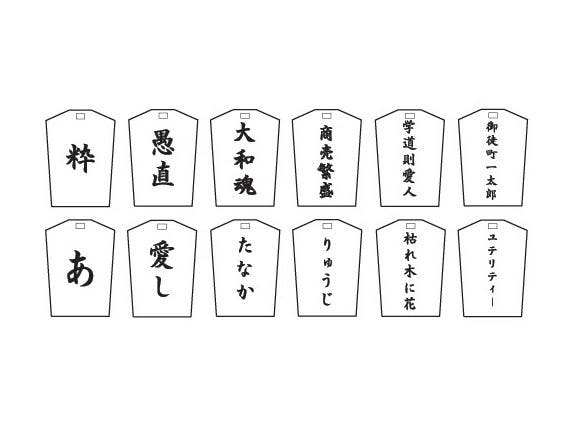 粋
愚直
大和魂
商売繁盛
学道則愛人
御徒町一太郎
あ
愛し
たなか
りゅうじ
枯れ木に花
ユテリティー